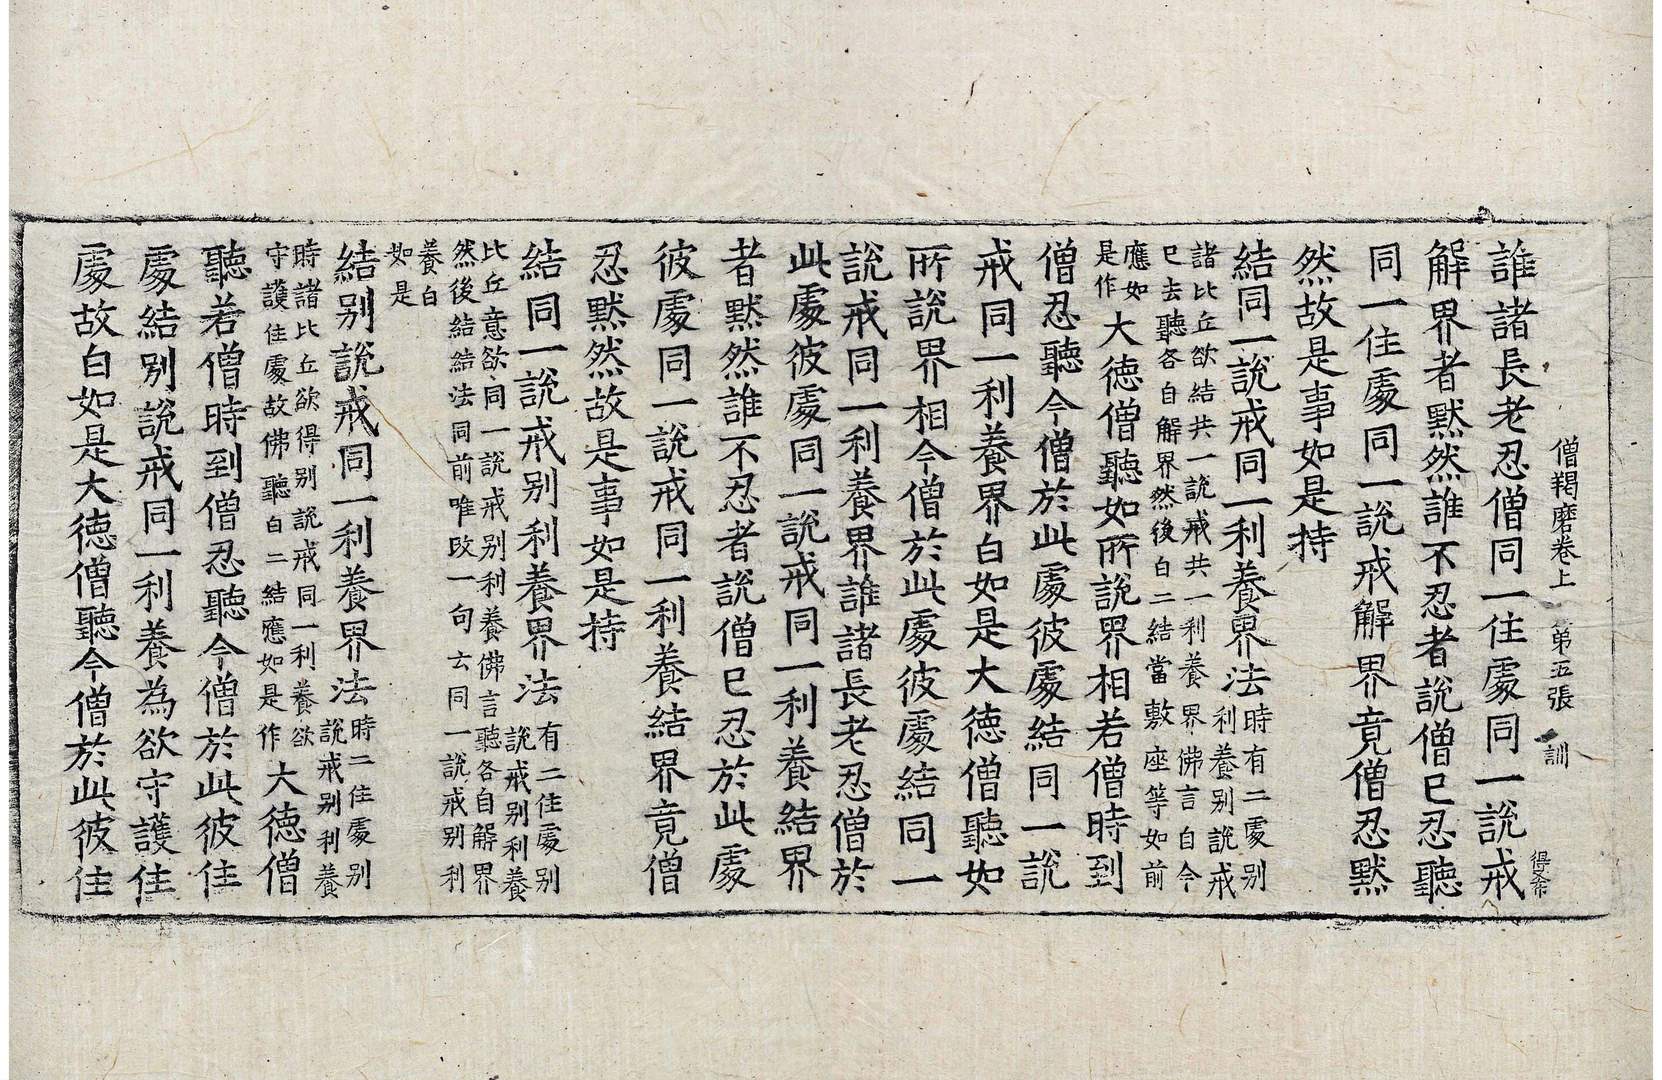 僧羯磨卷上 第五張 訓
誰諸長老忍僧同一住處同一說戒
解界者默然誰不忍者說僧已忍聽
同一住處同一說戒解界竟僧忍默
然故是事如是持
結同一說戒同一利養界法時有二處別利養別說戒
諸比丘欲結共一說戒共一利養界佛言自今
已去聽各自解界然後白二結當敷座等如前
應如是作大德僧聽如所說界相若僧時到
僧忍聽今僧於此處彼處結同一說
戒同一利養界白如是大德僧聽如
所說界相今僧於此處彼處結同一
說戒同一利養界誰諸長老忍僧於
此處彼處同一說戒同一利養結界
者默然誰不忍者說僧已忍於此處
彼處同一說戒同一利養結界竟僧
忍默然故是事如是持
結同一說戒別利養界法有二住處別說戒別利養
比丘意欲同一說戒別利養佛言聽各自解界
然後結結法同前唯改一句云同一說戒別利
養白如是
結別說戒同一利養界法時二住處別說戒別利養
時諸比丘欲得別說戒同一利養欲
守護住處故佛聽白二結應如是作大德僧
聽若僧時到僧忍聽今僧於此彼住
處結別說戒同一利養為欲守護住
處故白如是大德僧聽今僧於此彼住